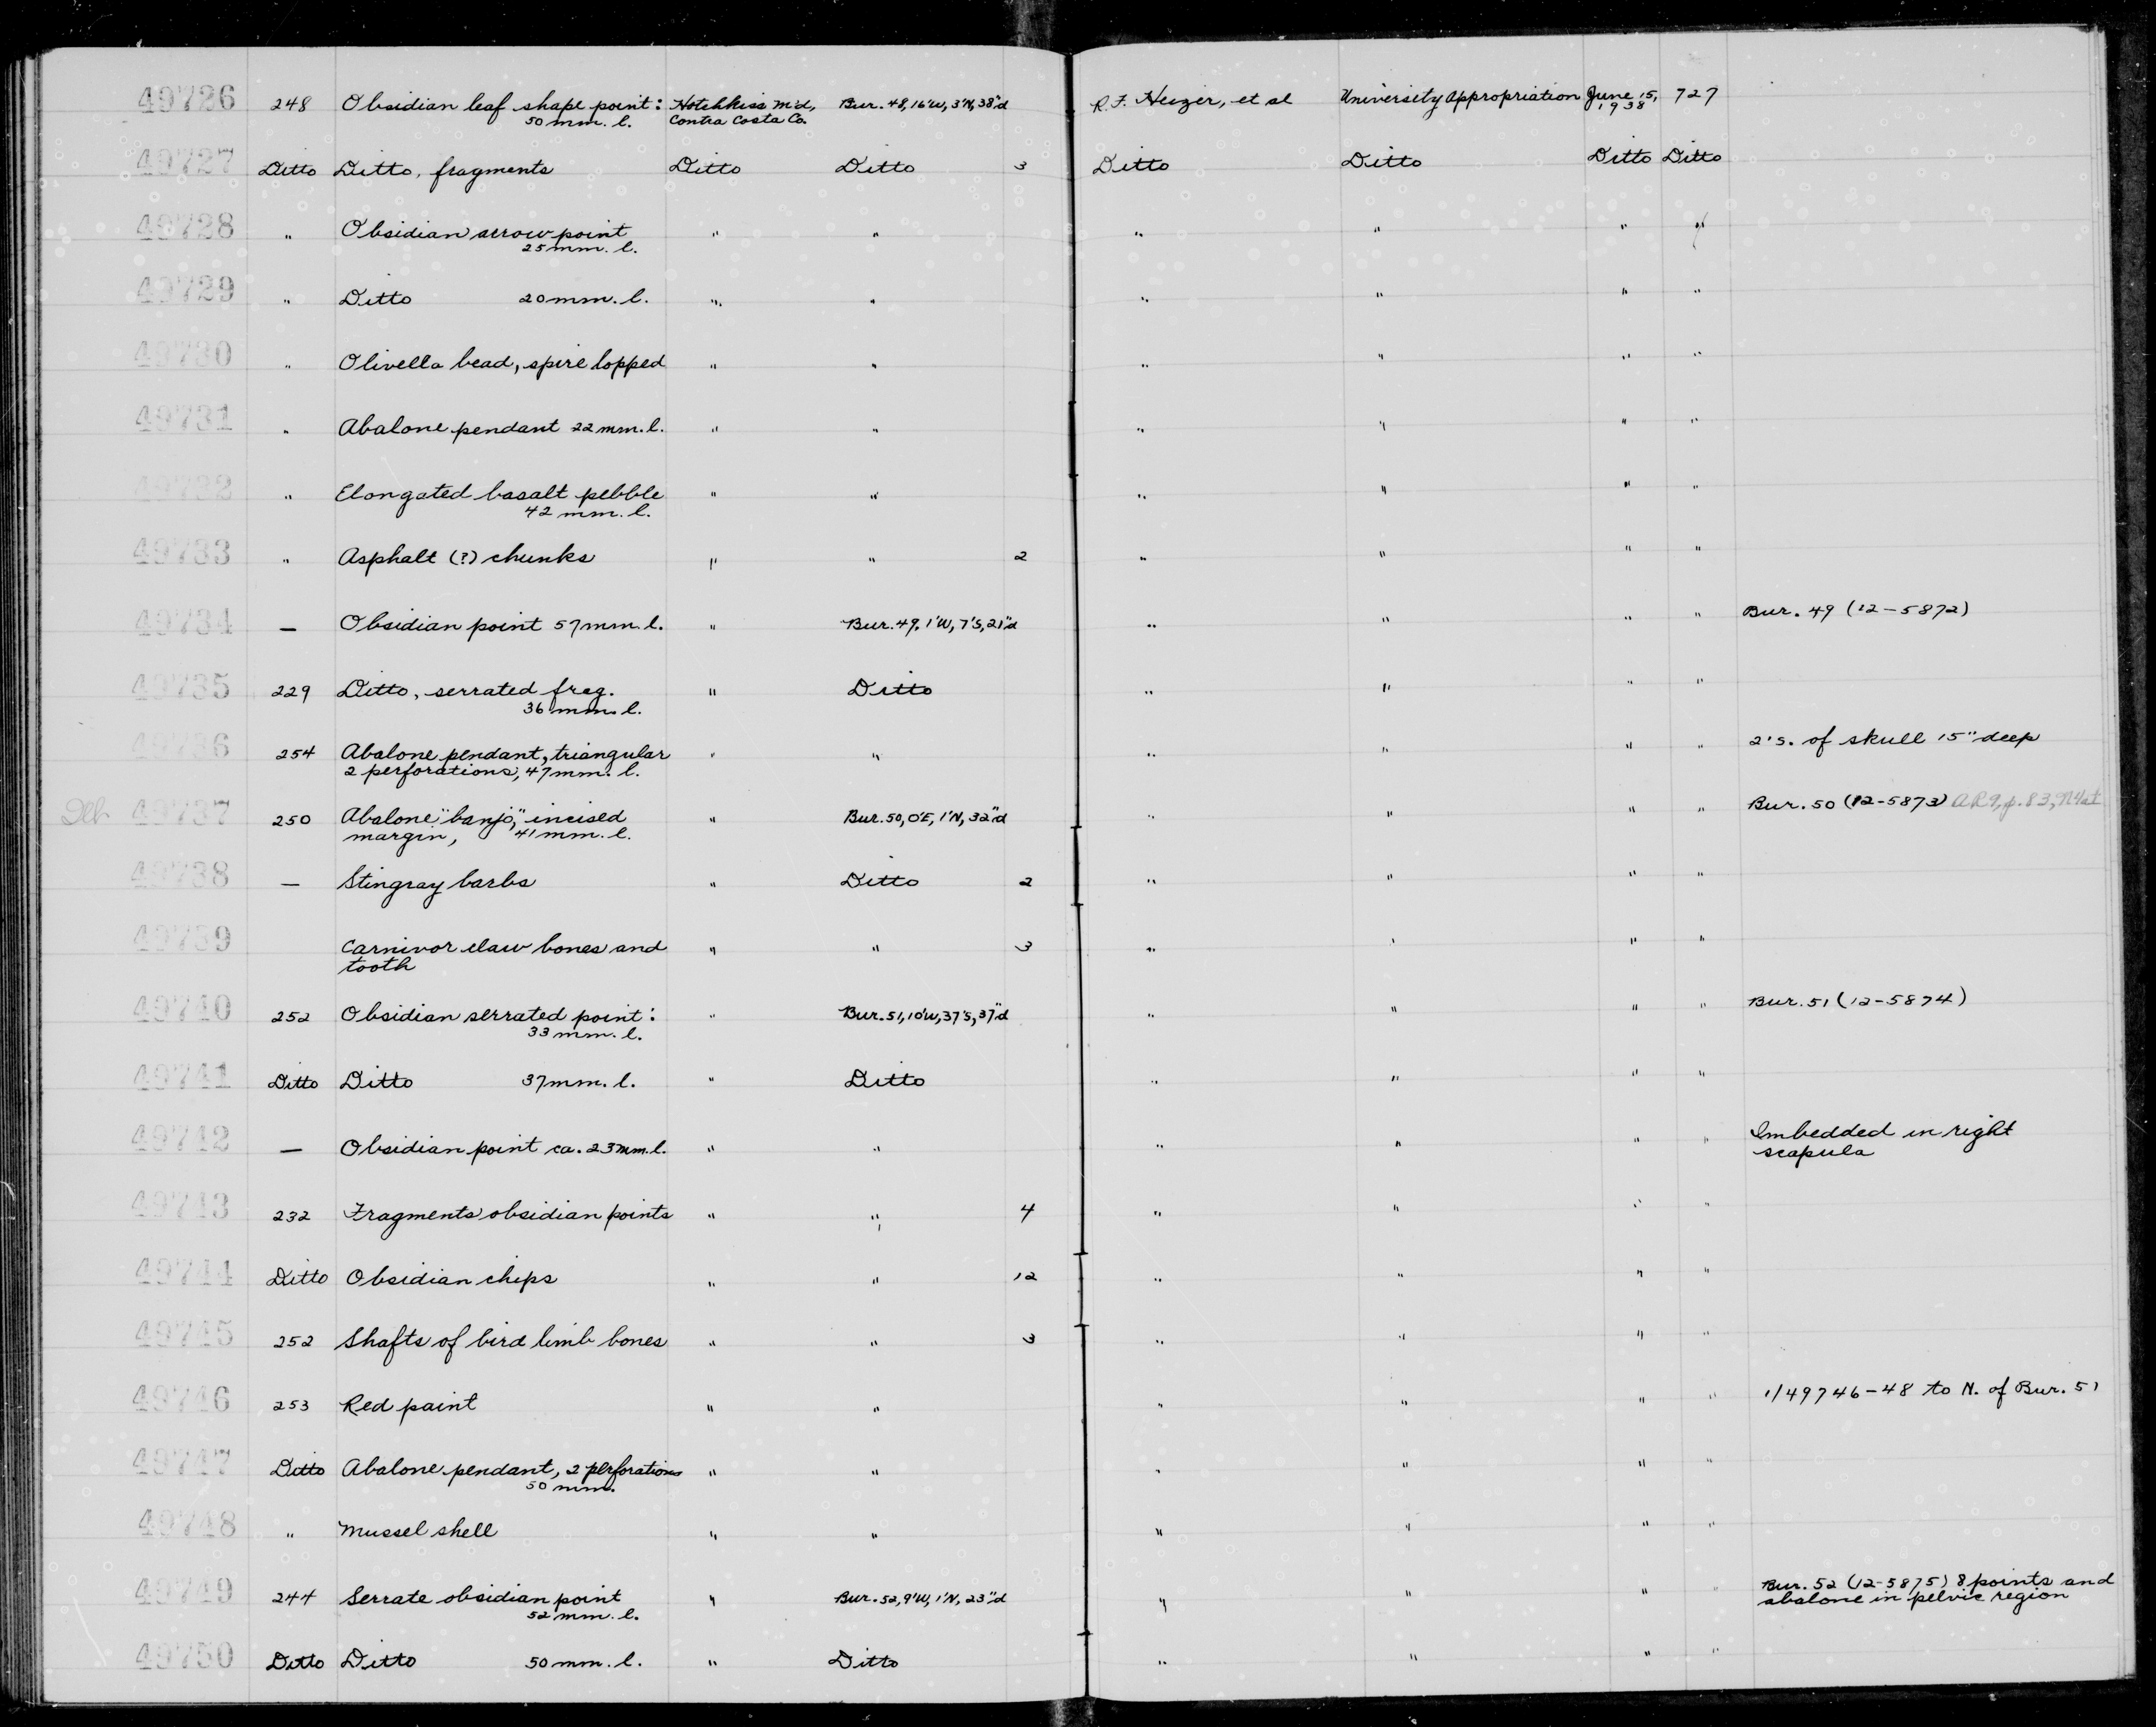 49726 248 Obsidian leaf shape point: Hotchkiss m'd, Bur. 48, 16'W, 3'N, 38"d R.F. Heizer, et al University Appropriation June 15, 727
50 mm. l. Contra Costa Co. 1938
49727 Ditto Ditto, fragments Ditto Ditto 3 Ditto Ditto Ditto Ditto
49728 " Obsidian arrow point " " " " " "
25 mm. l.
49729 " Ditto 20 mm. l. " " " " " "
49730 " Olivella bead, spire lopped " " " " " "
49731 " Abalone pendant 22 mm. l. " " " " " "
49732 " Elongated basalt pebble " " " " " "
42 mm. l.
49733 " Asphalt (?) chunks " " 2 " " " "
49734 — Obsidian point 57 mm. l. " Bur. 49, 1'W, 7'S, 21"d " " " " Bur. 49 (12-5872)
49735 229 Ditto, serrated frag. " Ditto " " " "
36 mm. l.
49736 254 Abalone pendant, triangular " " " " " " 2's. of skull 15" deep
2 perforations, 47 mm. l.
49737 250 Abalone "banjo," incised " Bur. 50, 0'E, 1'N, 32"d " " " " Bur. 50 (12-5873) AR9, p. 83,
margin, 41 mm. l.
49738 — Stingray barbs " Ditto 2 " " " "
49739 Carnivor claw bones and " " 3 " " " "
tooth
49740 252 Obsidian serrated point: " Bur. 51, 10'W, 37'S, 37"d " " " " Bur. 51 (12-5874)
33 mm. l.
49741 Ditto Ditto 37 mm. l. " Ditto " " " "
49742 — Obsidian point ca. 23 mm. l. " " " " " " Imbedded in right
scapula
49743 232 Fragments obsidian points " " 4 " " " "
49744 Ditto Obsidian chips " " 12 " " " "
49745 252 Shafts of bird limb bones " " 3 " " " "
49746 253 Red paint " " " " " " 1/49746-48 to N. of Bur. 51
49747 Ditto Abalone pendant, 2 perforations " " " " " "
50 mm.
49748 " Mussel shell " " " " " "
49749 244 Serrate obsidian point " Bur. 52, 9'W, 1'N, 23"d " " " " Bur. 52 (12-5875) 8 points and
52 mm. l. abalone in pelvic region
49750 Ditto Ditto 50 mm. l. " Ditto " " " "